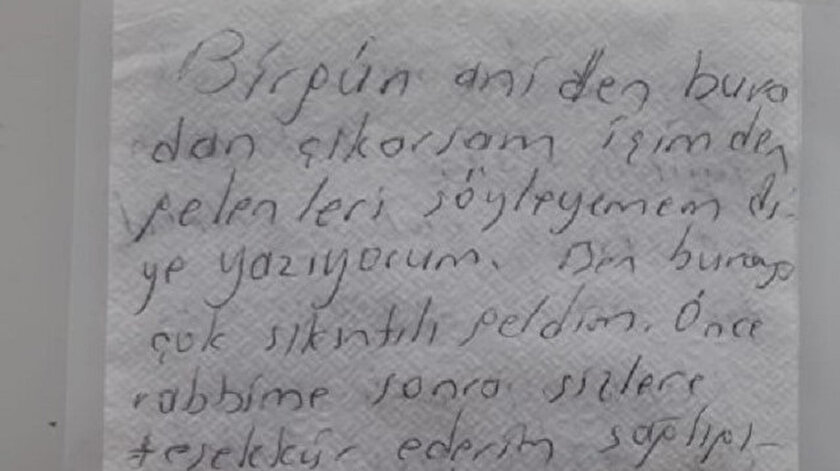 Birgün aniden bura
dan çıkarsam içimden
gelenleri söyleyemem di-
ye yazıyorum. Ben buraya
çok sıkıntılı geldim. Önce
rabbime sonra sizlere
teşekkür ederim sağlığı-